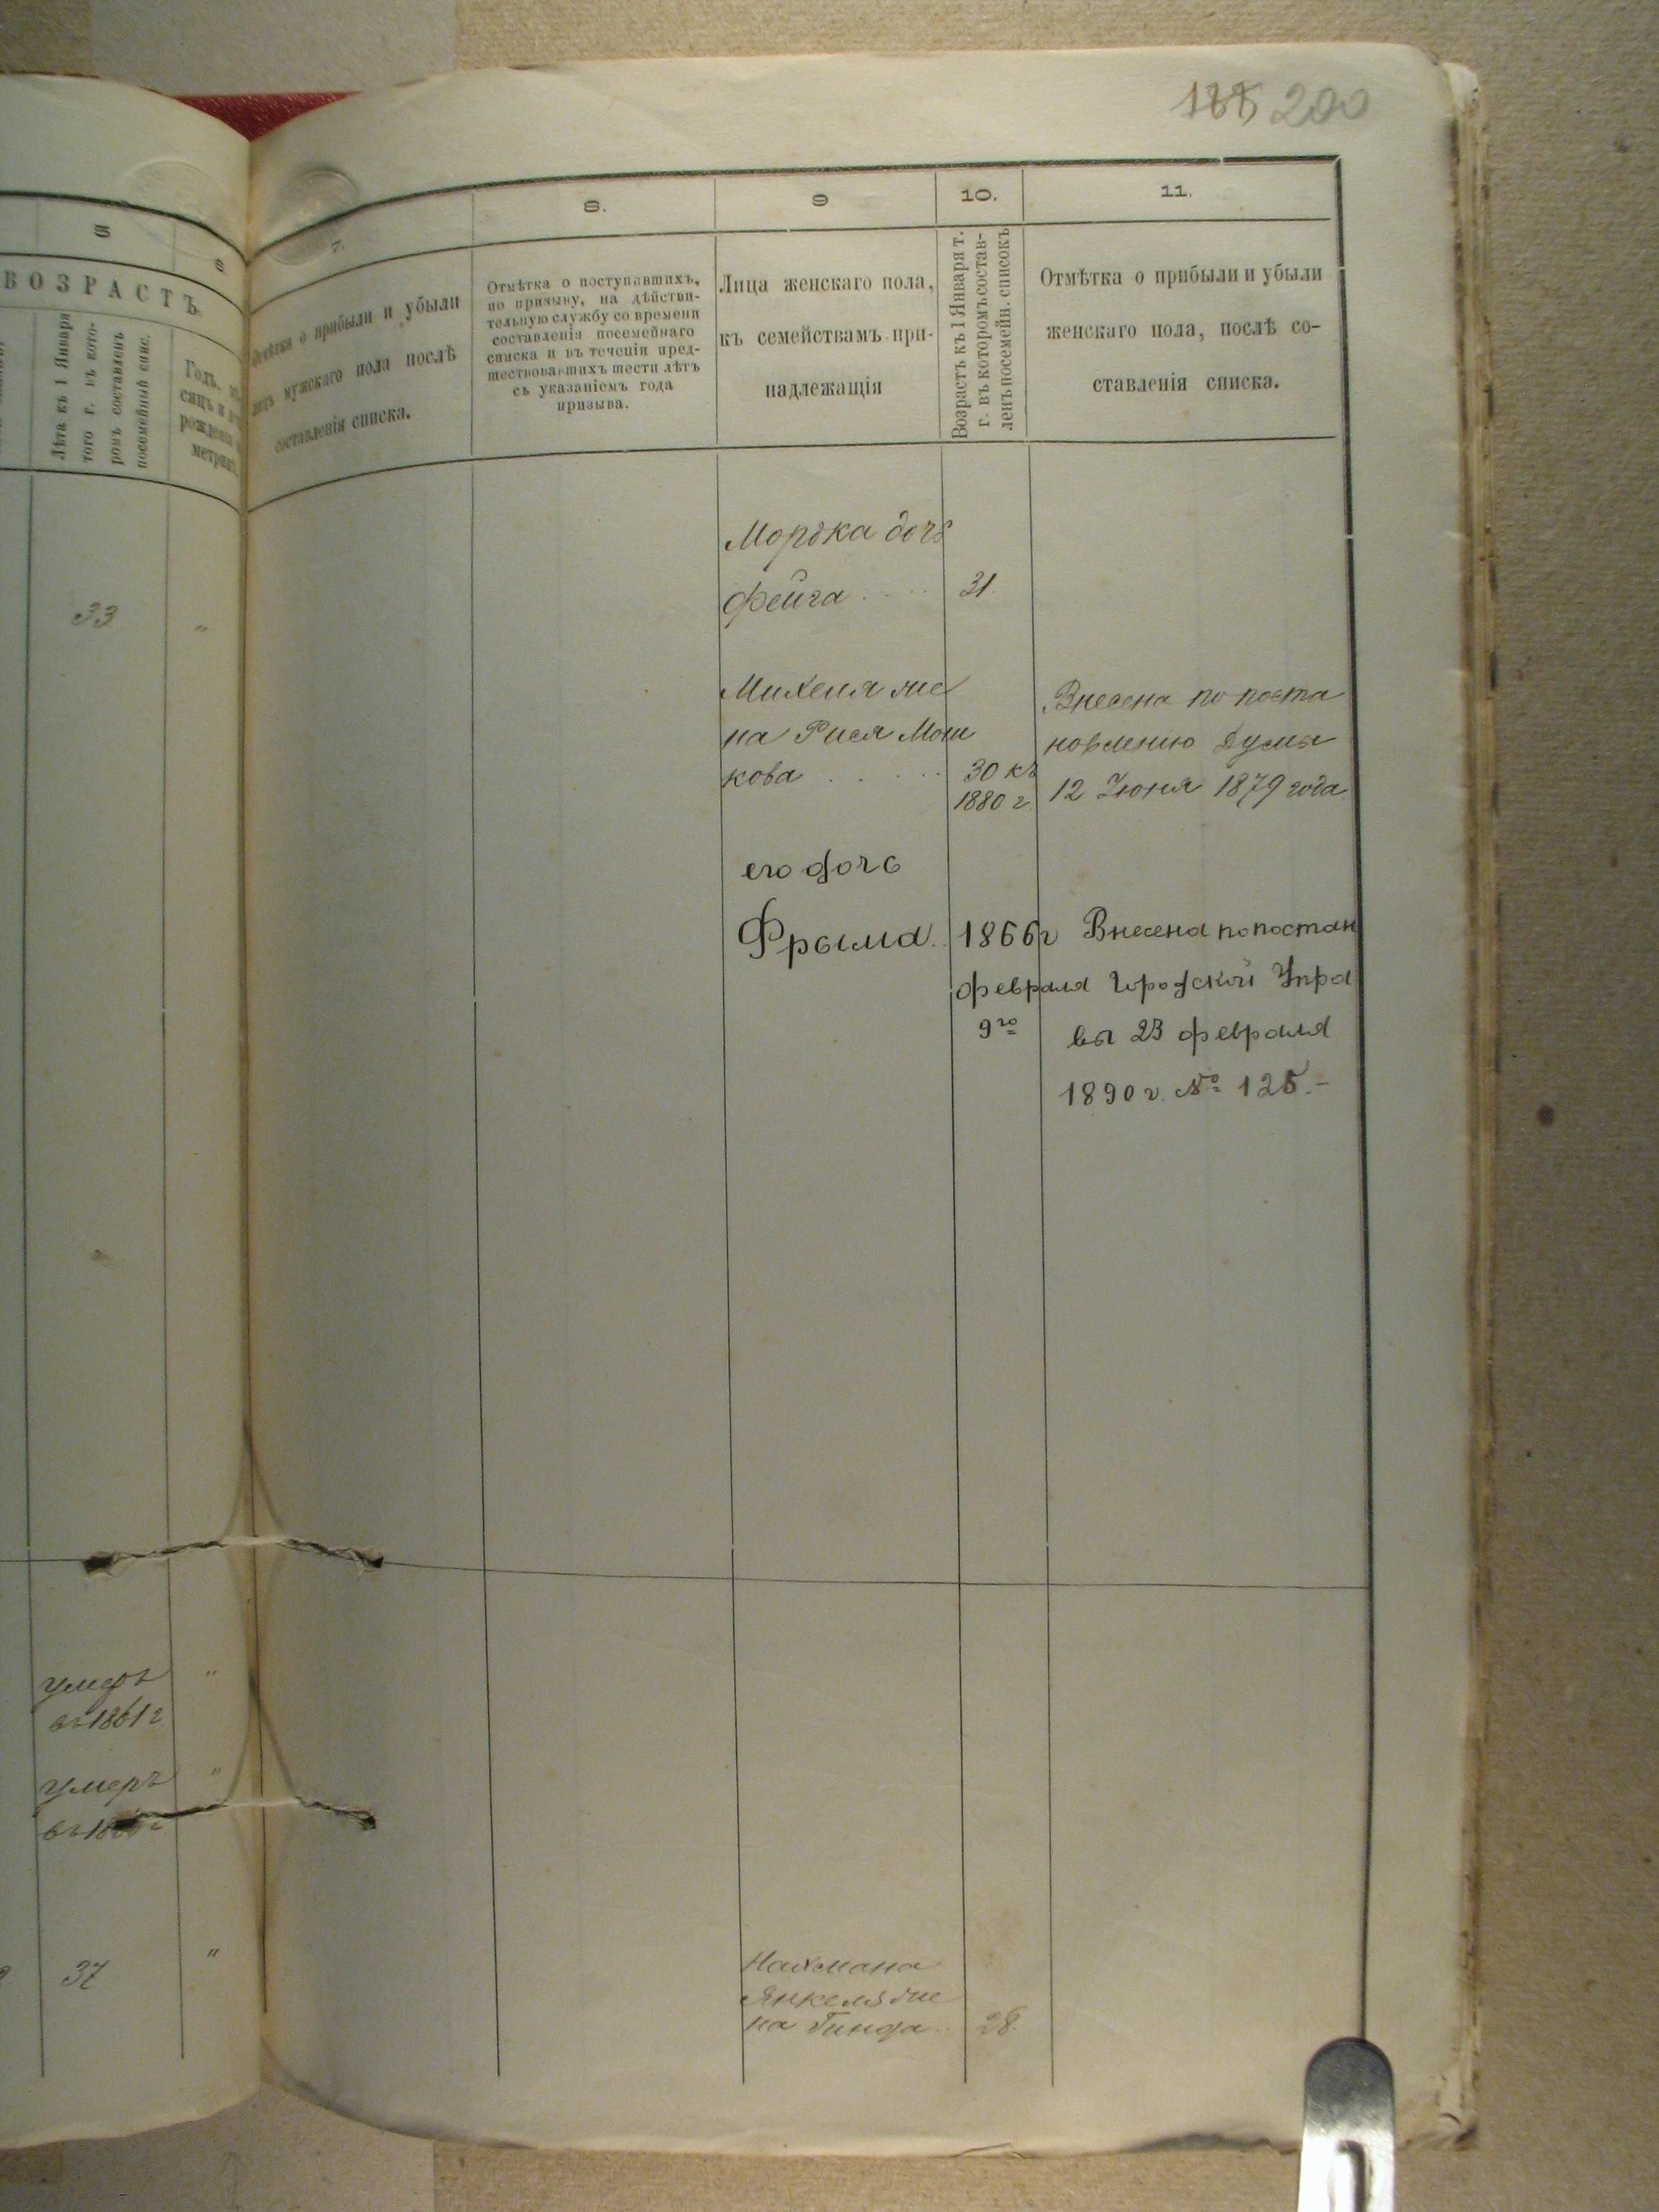 200
5
6
ВОЗРАСТЪ
Лѣта къ 1 Января
того г. въ кото-
ромъ составленъ
посемейный спис.
Годъ, мѣ
сяцъ и
рожденія
метрик
33 "
умеръ "
въ 1861 г
умеръ "
37 "
7.
8.
9
10.
11.
Отмѣтка о прибыли и убыли
лицъ мужскаго пола послѣ
составленія списка.
Отмѣтка о поступившихъ,
по призыву, на дѣйстви-
тельную службу со времени
составленія посемейнаго
списка и въ теченіи пред-
шествовавшихъ шести лѣтъ
съ указаніемъ года
призыва.
Лица женскаго пола,
къ семействамъ при-
надлежащія
Возрастъ къ 1 Января т.
г. въ которомъ состав-
ленъ посемейн. списокъ
Отмѣтка о прибыли и убыли
женскаго пола, послѣ со-
ставленія списка.
Морѣка дочь
Фейга . . . . 31.
Михеля же
на Рися Мош
кова . . . . . 30 къ
1880 г.
Внесена по поста
новленію Думы
12 Іюня 1879 года
его дочь
Фрыма. . 1866 г
февраля
9го
Внесена по постан
Городской Упра
вы 23 февраля
1890 г. № 125.-
Нахмана
Янкеля же
на Гинда. . 28.